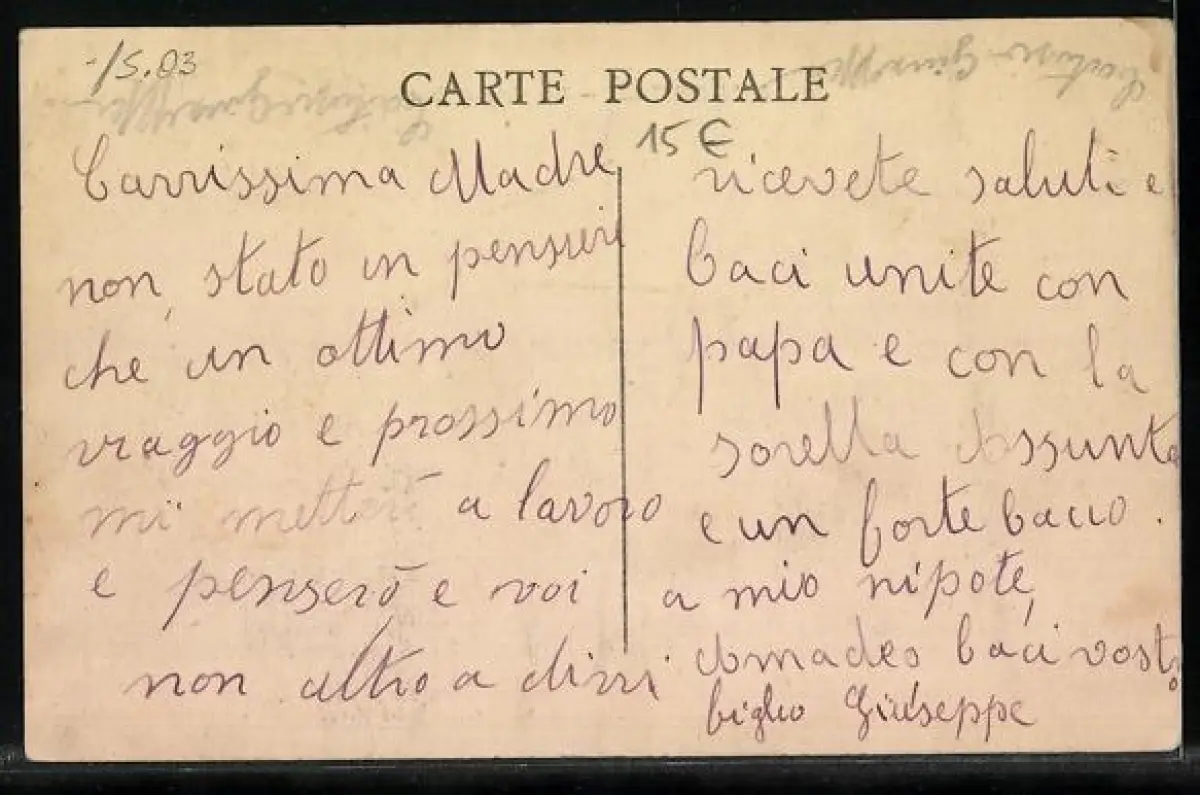 -/S.03
CARTE POSTALE
15 €
Carrissima Madre
non stato in pensieri
che un ottimo
viaggio e prossimo
mi metterò a lavoro
e penserò e voi
non altro a dirvi
ricevete saluti e
baci unite con
papa e con la
sorella Assunta
e un forte bacio.
a mio nipote,
Amadeo baci vostro
figlio Giuseppe